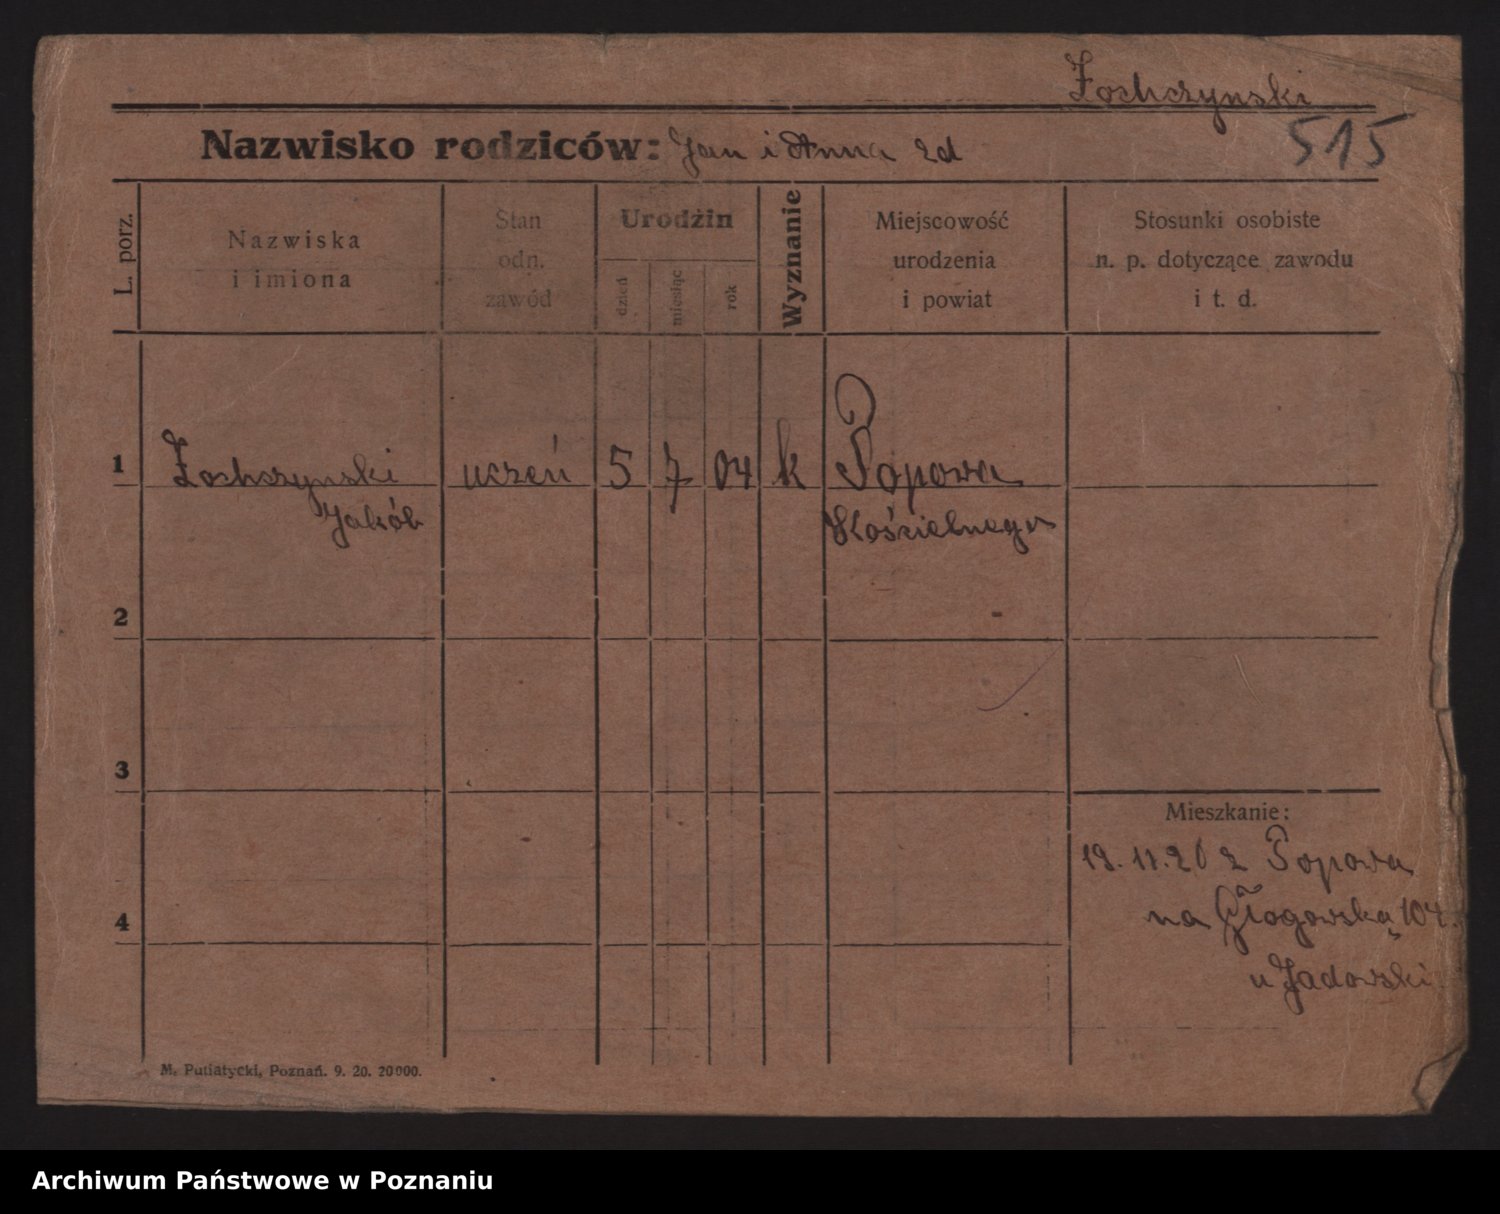 Żochczynski
515
Nazwisko rodziców: Jan i Anna
L. porz.
Nazwiska
i imiona
Stan
odn.
zawód
Urodzin
dzień
miesiąc
rok
Wyznanie
Miejscowość
urodzenia
i powiat
Stosunki osobiste
n. p. dotyczące zawodu
i t. d.
1
Żochczynski
Jakób
uczeń
5
7
04
k
Popowa
Kościelnego
2
3
4
Mieszkanie:
18. 11. 20 z Popowa
na Głogowską 104.
u Jadowski
M. Putiatycki, Poznań. 9. 20. 20000.
Archiwum Państwowe w Poznaniu